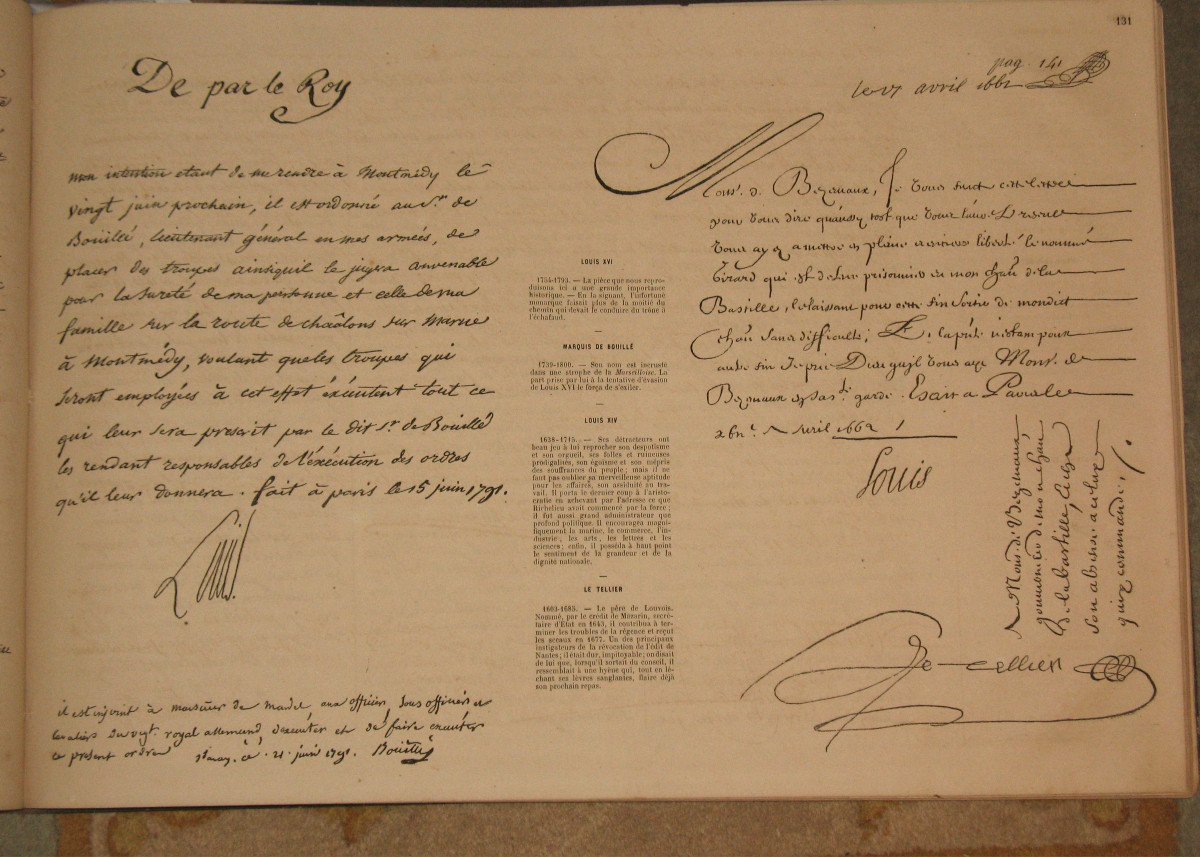 131
De par le Roy
mon intention etant de me rendre à Montmédy le
vingt juin prochain, il est ordonné au Sr. de
Bouillé, lieutenant général en mes armées, de
placer des troupes ainsi quil le jugera convenable
pour la sureté de ma personne et celle de ma
famille sur la route de chaâlons sur Marne
à Montmédy, voulant que les troupes qui
seront employées à cet effet éxécutent tout ce
qui leur sera prescrit par le dit Sr. de Bouillé
les rendant responsables de l'éxécution des ordres
qu'il leur donnera. fait à paris le 15 juin 1791.
Louis
il est enjoint à monsieur de mandel aux officiers, sous officiers et
cavaliers du regt. royal allemand, d'exécuter et de faire exécuter
ce présent ordre ce 21 juin 1791. Bouillé
LOUIS XVI
1754-1793. — La pièce que nous repro-
duisons ici a une grande importance
historique. — En la signant, l'infortuné
monarque faisait plus de la moitié du
chemin qui devait le conduire du trône à
l'échafaud.
MARQUIS DE BOUILLÉ
1739-1800. — Son nom est incrusté
dans une strophe de la Marseillaise. La
part prise par lui à la tentative d'évasion
de Louis XVI le força de s'exiler.
LOUIS XIV
1638-1715. — Ses détracteurs ont
beau jeu à lui reprocher son despotisme
et son orgueil, ses folles et ruineuses
prodigalités, son égoïsme et son mépris
des souffrances du peuple; mais il ne
faut pas oublier sa merveilleuse aptitude
pour les affaires, son assiduité au tra-
vail. Il porta le dernier coup à l'aristo-
cratie en achevant par l'adresse ce que
Richelieu avait commencé par la force;
il fut aussi grand administrateur que
profond politique. Il encouragea magni-
fiquement la marine, le commerce, l'in-
dustrie, les arts, les lettres et les
sciences; enfin, il posséda à haut point
le sentiment de la grandeur et de la
dignité nationale.
LE TELLIER
1603-1685. — Le père de Louvois.
Nommé, par le crédit de Mazarin, secré-
taire d'État en 1643, il contribua à ter-
miner les troubles de la régence et reçut
les sceaux en 1677. Un des principaux
instigateurs de la révocation de l'édit de
Nantes; il était dur, impitoyable; on disait
de lui que, lorsqu'il sortait du conseil, il
ressemblait à une hyène qui, tout en lé-
chant ses lèvres sanglantes, flaire déjà
son prochain repas.
pag. 141
le 17 avril 1662
Monsr. de Bezemaux, Je vous fais cette lettre
pour vous dire qu'aussy tost que vous l'aurez receue
vous ayez a mettre en pleine et entiere liberté le nommé
Girard qui est detenu prisonnier en mon chau de la
Bastille, le laissant pour cette fin sortir de mondit
chau sans difficulté, Et la pnte n'estant pour
autre fin Je prie Dieu qu'il vous ayt Monsr. de
Bezemaux en sa ste garde. Escrit a Paris le
Avril 1662
Louis
A Monsr. de Bezemaux
gouverneur de mon chau
de la bastille, et en
son absence a celuy
qui y commande.
Le Tellier